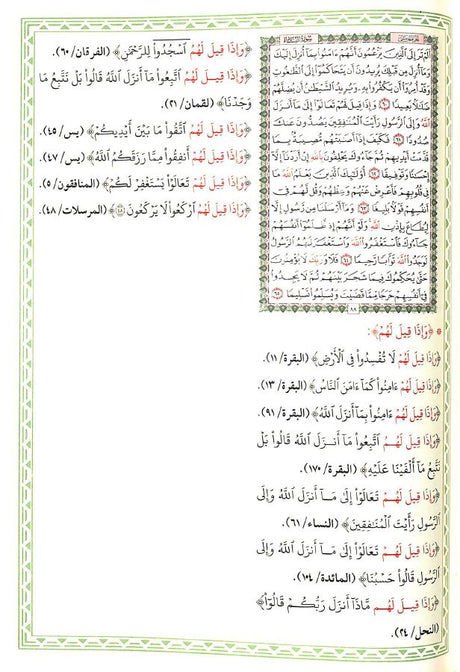 أَلَمْ تَرَ إِلَى ٱلَّذِينَ يَزْعُمُونَ أَنَّهُمْ ءَامَنُوا۟ بِمَآ أُنزِلَ إِلَيْكَ
وَمَآ أُنزِلَ مِن قَبْلِكَ يُرِيدُونَ أَن يَتَحَاكَمُوٓا۟ إِلَى ٱلطَّٰغُوتِ
وَقَدْ أُمِرُوٓا۟ أَن يَكْفُرُوا۟ بِهِۦ وَيُرِيدُ ٱلشَّيْطَٰنُ أَن يُضِلَّهُمْ
ضَلَٰلًۢا بَعِيدًا ٦٠ وَإِذَا قِيلَ لَهُمْ تَعَالَوْا۟ إِلَىٰ مَآ أَنزَلَ
ٱللَّهُ وَإِلَى ٱلرَّسُولِ رَأَيْتَ ٱلْمُنَٰفِقِينَ يَصُدُّونَ عَنكَ
صُدُودًا ٦١ فَكَيْفَ إِذَآ أَصَٰبَتْهُم مُّصِيبَةٌۢ بِمَا
قَدَّمَتْ أَيْدِيهِمْ ثُمَّ جَآءُوكَ يَحْلِفُونَ بِٱللَّهِ إِنْ أَرَدْنَآ إِلَّآ
إِحْسَٰنًا وَتَوْفِيقًا ٦٢ أُو۟لَٰٓئِكَ ٱلَّذِينَ يَعْلَمُ ٱللَّهُ مَا
فِى قُلُوبِهِمْ فَأَعْرِضْ عَنْهُمْ وَعِظْهُمْ وَقُل لَّهُمْ فِىٓ
أَنفُسِهِمْ قَوْلًۢا بَلِيغًا ٦٣ وَمَآ أَرْسَلْنَا مِن رَّسُولٍ إِلَّا
لِيُطَاعَ بِإِذْنِ ٱللَّهِ وَلَوْ أَنَّهُمْ إِذ ظَّلَمُوٓا۟ أَنفُسَهُمْ
جَآءُوكَ فَٱسْتَغْفَرُوا۟ ٱللَّهَ وَٱسْتَغْفَرَ لَهُمُ ٱلرَّسُولُ
لَوَجَدُوا۟ ٱللَّهَ تَوَّابًا رَّحِيمًا ٦٤ فَلَا وَرَبِّكَ لَا يُؤْمِنُونَ
حَتَّىٰ يُحَكِّمُوكَ فِيمَا شَجَرَ بَيْنَهُمْ ثُمَّ لَا يَجِدُوا۟
فِىٓ أَنفُسِهِمْ حَرَجًا مِّمَّا قَضَيْتَ وَيُسَلِّمُوا۟ تَسْلِيمًا ٦٥
٨٨
* ﴿وَإِذَا قِيلَ لَهُمْ﴾:
﴿وَإِذَا قِيلَ لَهُمْ لَا تُفْسِدُوا۟ فِى ٱلْأَرْضِ﴾ (البقرة/ ١١).
﴿وَإِذَا قِيلَ لَهُمْ ءَامِنُوا۟ كَمَآ ءَامَنَ ٱلنَّاسُ﴾ (البقرة/ ١٣).
﴿وَإِذَا قِيلَ لَهُمْ ءَامِنُوا۟ بِمَآ أَنزَلَ ٱللَّهُ﴾ (البقرة/ ٩١).
﴿وَإِذَا قِيلَ لَهُمُ ٱتَّبِعُوا۟ مَآ أَنزَلَ ٱللَّهُ قَالُوا۟ بَلْ
نَتَّبِعُ مَآ أَلْفَيْنَا عَلَيْهِ﴾ (البقرة/ ١٧٠).
﴿وَإِذَا قِيلَ لَهُمْ تَعَالَوْا۟ إِلَىٰ مَآ أَنزَلَ ٱللَّهُ وَإِلَى
ٱلرَّسُولِ رَأَيْتَ ٱلْمُنَٰفِقِينَ﴾ (النساء/ ٦١).
﴿وَإِذَا قِيلَ لَهُمْ تَعَالَوْا۟ إِلَىٰ مَآ أَنزَلَ ٱللَّهُ وَإِلَى
ٱلرَّسُولِ قَالُوا۟ حَسْبُنَا﴾ (المائدة/ ١٠٤).
﴿وَإِذَا قِيلَ لَهُم مَّاذَآ أَنزَلَ رَبُّكُمْ قَالُوٓا۟﴾
(النحل/ ٢٤).
﴿وَإِذَا قِيلَ لَهُمُ ٱسْجُدُوا۟ لِلرَّحْمَٰنِ﴾ (الفرقان/ ٦٠).
﴿وَإِذَا قِيلَ لَهُمُ ٱتَّبِعُوا۟ مَآ أَنزَلَ ٱللَّهُ قَالُوا۟ بَلْ نَتَّبِعُ مَا
وَجَدْنَا﴾ (لقمان/ ٢١).
﴿وَإِذَا قِيلَ لَهُمُ ٱتَّقُوا۟ مَا بَيْنَ أَيْدِيكُمْ﴾ (يس/ ٤٥).
﴿وَإِذَا قِيلَ لَهُمْ أَنفِقُوا۟ مِمَّا رَزَقَكُمُ ٱللَّهُ﴾ (يس/ ٤٧).
﴿وَإِذَا قِيلَ لَهُمْ تَعَالَوْا۟ يَسْتَغْفِرْ لَكُمْ﴾ (المنافقون/ ٥).
﴿وَإِذَا قِيلَ لَهُمُ ٱرْكَعُوا۟ لَا يَرْكَعُونَ ٤٨﴾ (المرسلات/ ٤٨).